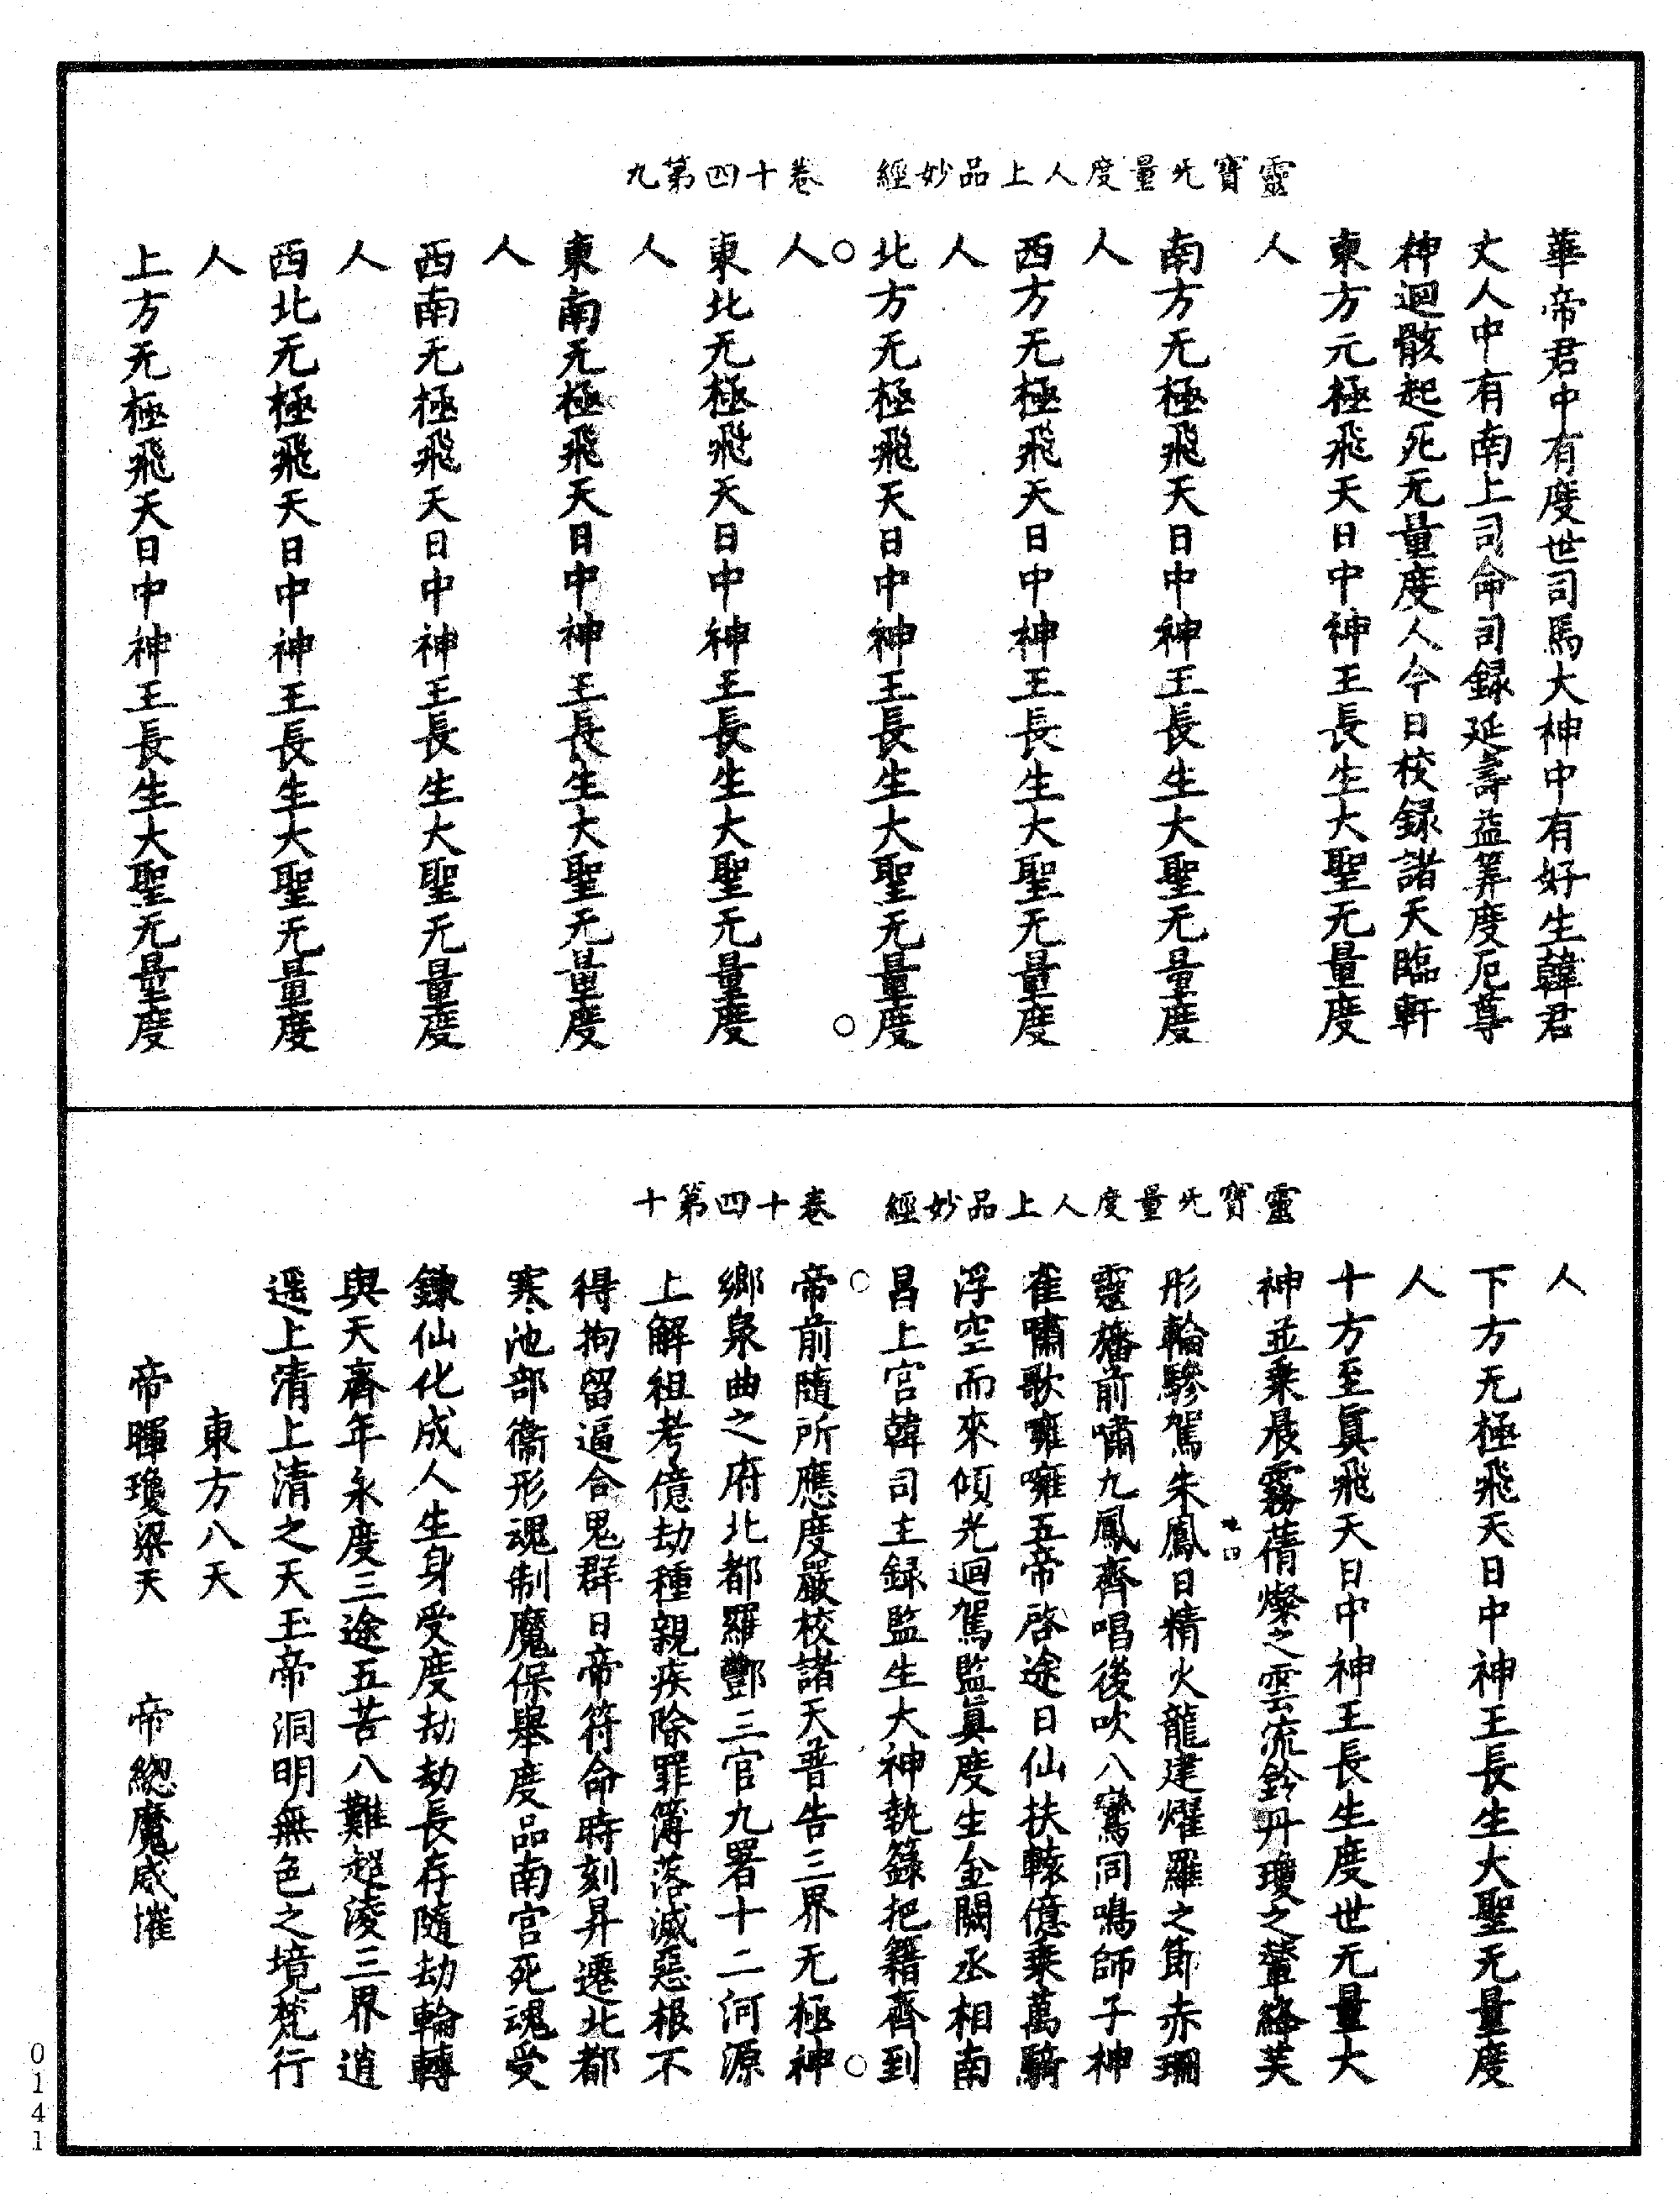 靈寶无量度人上品妙經　卷十四第九
華帝君中有度世司馬大神中有好生韓君
丈人中有南上司命司録延壽益筭度厄尊
神迴骸起死无量度人今日校録諸天臨軒
東方元極飛天日中神王長生大聖无量度
人
南方无極飛天日中神王長生大聖无量度
人
西方无極飛天日中神王長生大聖无量度
人
北方无極飛天日中神王長生大聖无量度
人
東北无極飛天日中神王長生大聖无量度
人
東南无極飛天日中神王長生大聖无量度
人
西南无極飛天日中神王長生大聖无量度
人
西北无極飛天日中神王長生大聖无量度
人
上方无極飛天日中神王長生大聖无量度
靈寶无量度人上品妙經　卷十四第十
人
下方无極飛天日中神王長生大聖无量度
人
十方至真飛天日中神王長生度世无量大
神並乗晨霧蒨燦之雲流鈴丹瓊之輦絡芙
地四
彤輪驂駕朱鳳日精火龍建燿羅之節赤珊
靈旛前嘯九鳳齊唱後吹八鸞同鳴師子神
雀嘯歌嗈嗈五帝啓途日仙扶轅億乗萬騎
浮空而來傾光迴駕監真度生金闕丞相南
昌上宫韓司主録監生大神執籙把籍齊到
帝前隨所應度嚴校諸天普告三界无極神
鄉泉曲之府北都羅酆三官九署十二河源
上解祖考億劫種親疾除罪簿落滅惡根不
得拘留逼合鬼群日帝符命時刻昇遷北都
寒池部衛形魂制魔保舉度品南宫死魂受
鍊仙化成人生身受度劫劫長存隨劫輪轉
與天齊年永度三途五苦八難超淩三界逍
遥上清上清之天玉帝洞明無色之境梵行
東方八天
帝暉瓊梁天　帝緫魔威摧
0141